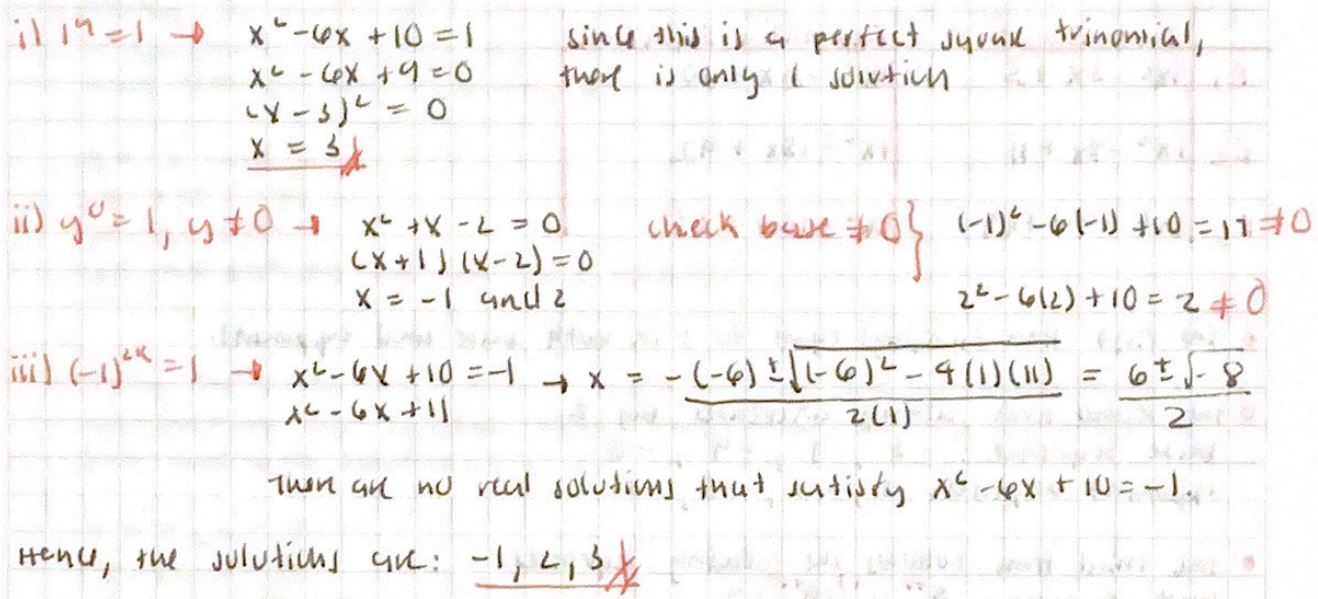 i) 1ⁿ = 1 → x² - 6x + 10 = 1 since this is a perfect square trinomial,
x² - 6x + 9 = 0 there is only 1 solution
(x - 3)² = 0
x = 3
ii) y⁰ = 1, y ≠ 0 → x² + x - 2 = 0 check base ≠ 0} (-1)² - 6(-1) + 10 = 17 ≠ 0
(x + 1)(x - 2) = 0
x = -1 and 2 2² - 6(2) + 10 = 2 ≠ 0
iii) (-1)²ᵏ = 1 → x² - 6x + 10 = -1 → x = -(-6) ± √((-6)² - 4(1)(11)) / 2(1) = 6 ± √-8 / 2
x² - 6x + 11
There are no real solutions that satisfy x² - 6x + 10 = -1.
Hence, the solutions are: -1, 2, 3